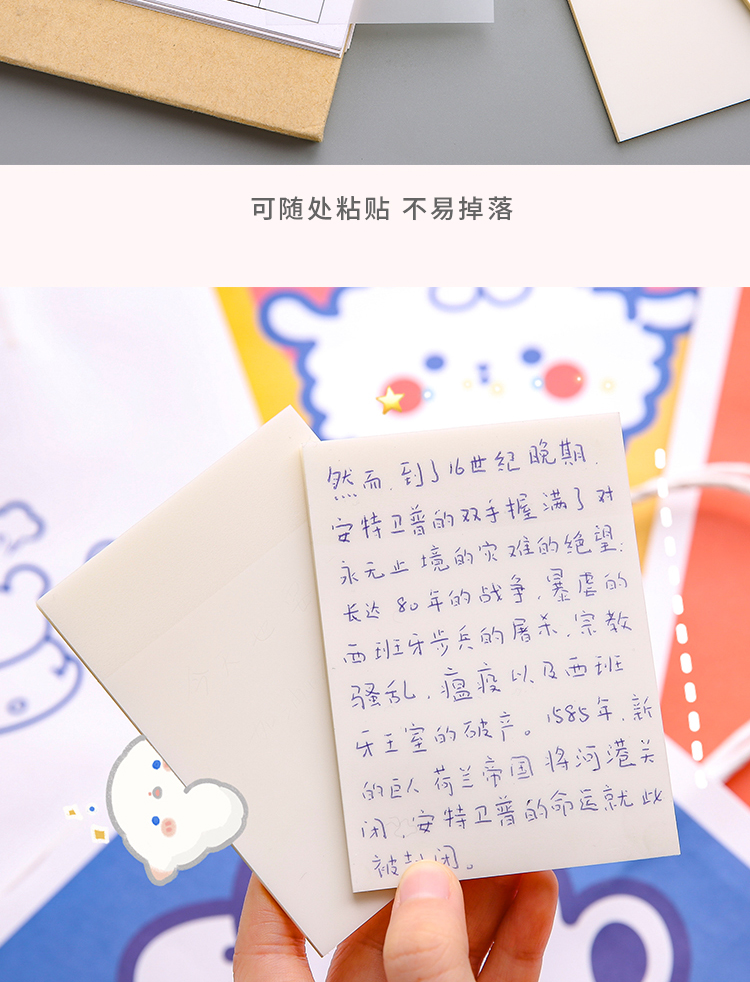 可随处粘贴 不易掉落
然而,到了16世纪晚期,
安特卫普的双手握满了对
永无止境的灾难的绝望:
长达80年的战争,暴虐的
西班牙步兵的屠杀,宗教
骚乱,瘟疫以及西班
牙王室的破产。1585年,新
的巨人荷兰帝国将河港关
闭,安特卫普的命运就此
被封闭。